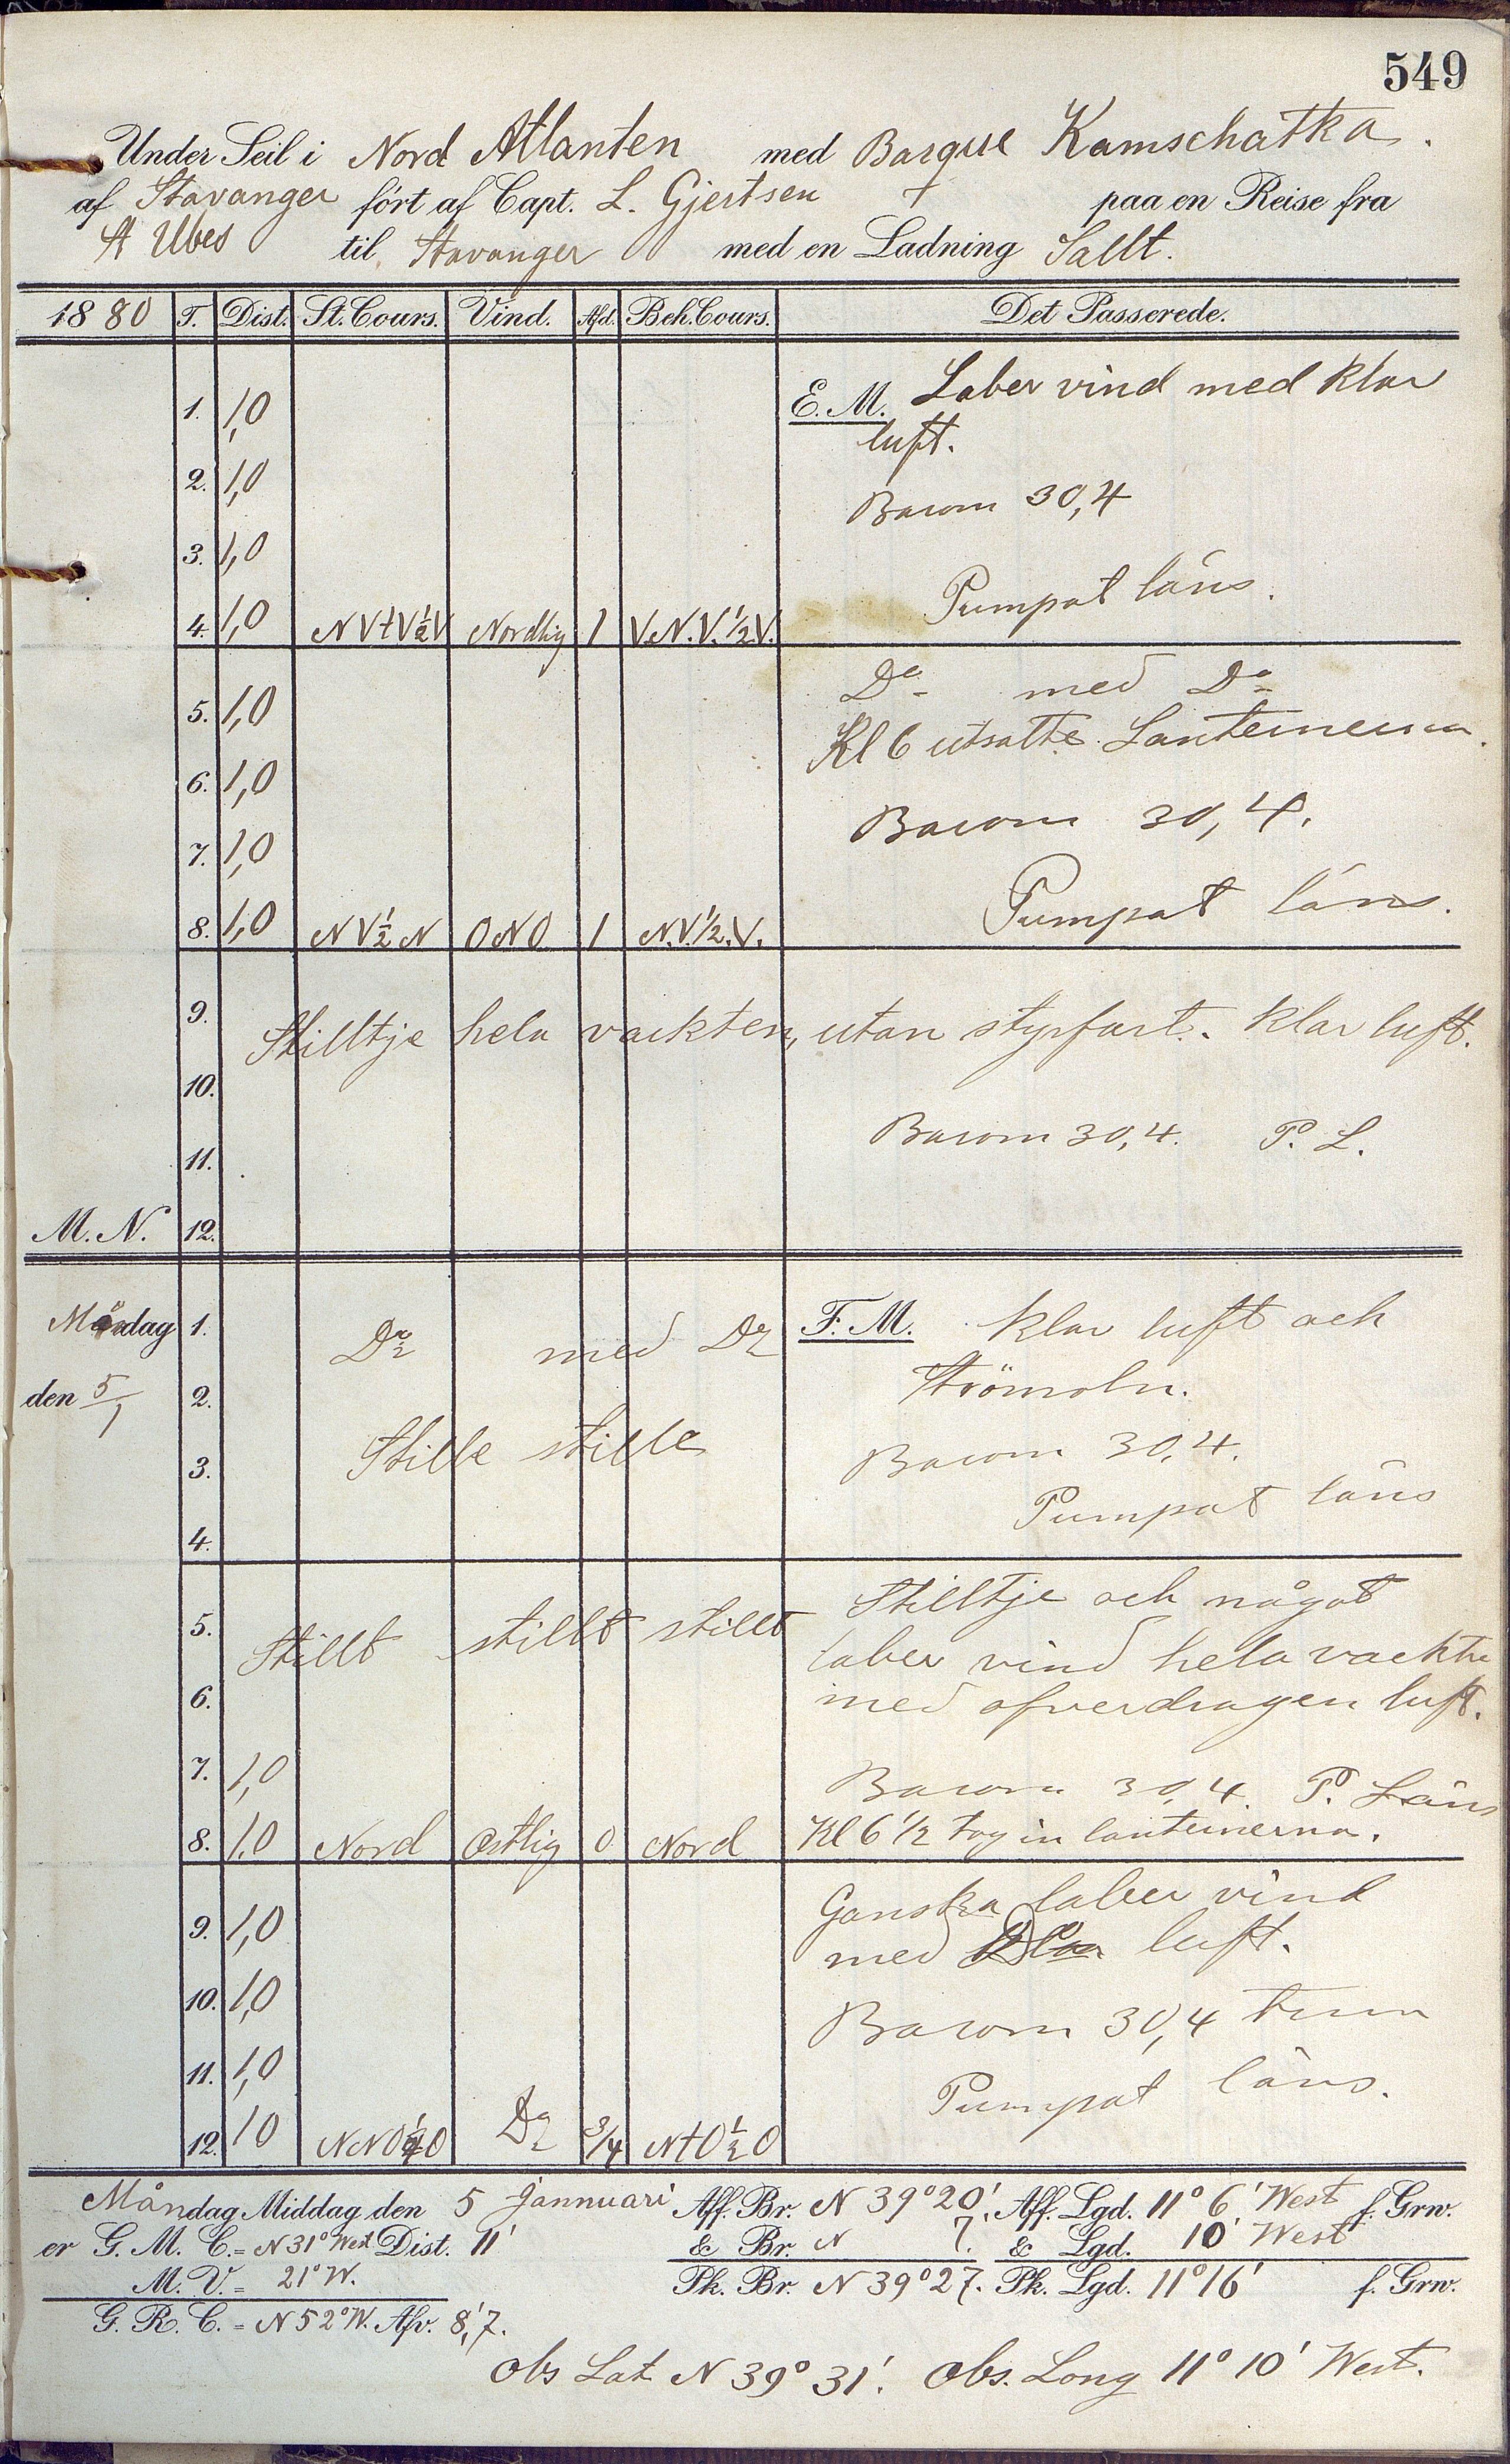 549
Under Seil i Nord Atlanten med Barque Kamschatka.
af Stavanger fört af Capt. L. Gjertsen + paa en Reise fra
St Ubes til Stavanger med en Ladning Sallt.
1880 T. Dist. St. Cours. Vind. Afd. Beh. Cours. Det Passerede.
1. 1,0 E. M. Laber vind med klar
luft.
2. 1,0 Barom 30,4
3. 1,0
4. 1,0 NVtV½V Nordlig 1 V.N.V.½V. Pumpat läns.
5. 1,0 Do med Do
Kl 6 utsatte Lanternerna.
6. 1,0
7. 1,0 Barom 30,4.
8. 1,0 NV½N ONO 1 N.V.½.V. Pumpat läns.
9. Stilltje hela vackten, utan styrfart. klar luft.
10.
11. Barom 30,4. P. L.
M. N. 12.
Måndag 1. Do med Do F. M. klar luft och
den 5/1 2. Strömoln.
3. Stille stille Barom 30,4.
4. Pumpat läns
5. Stillt stillt stillt Stilltje och något
laber vind hela vackte
6. med ofverdragen luft.
7. 1,0 Barom 30,4. P. Läns
8. 1,0 Nord Ostlig 0 Nord Kl 6½ tog in lanternerna.
9. 1,0 Ganska laber vind
med luft.
10. 1,0 Barom 30,4 tum
11. 1,0 Pumpat läns.
12. 10 NNO¼O Do 3/4 NtO½O
Måndag Middag den 5 Jannuari Aff. Br. N 39°20'. Aff. Lgd. 11°6' West f. Grw.
er G. M. C. = N 31° West Dist. 11' & Br. N 7. & Lgd. 10' West
M. V. = 21° W. Pk. Br. N 39°27. Pk. Lgd. 11°16' f. Grw.
G. R. C. = N 52° W. Afv. 8,'7.
Obs Lat N 39° 31'. Obs. Long 11° 10' West.